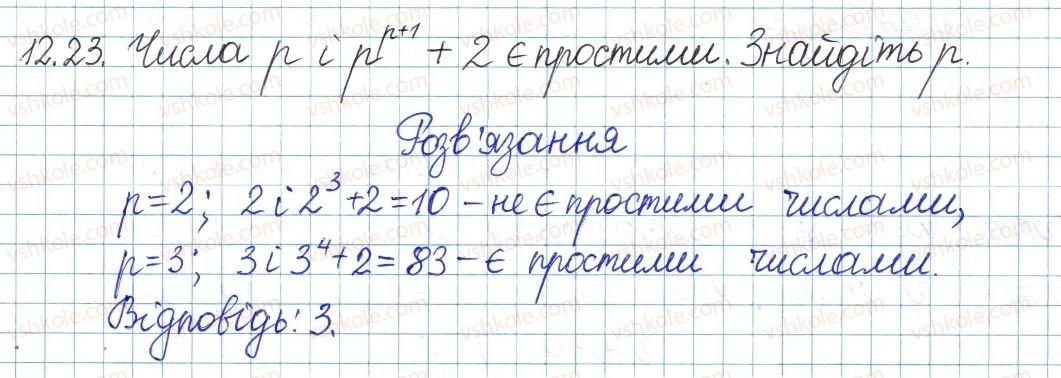 12.23. Числа p і p^{p+1} + 2 є простими. Знайдіть p.
Розв'язання
p=2; 2 і 2³+2=10 – не є простими числами,
p=3; 3 і 3⁴+2=83 – є простими числами.
Відповідь: 3.